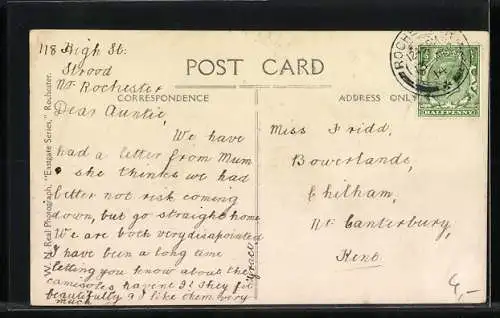 118 High St:
Strood
Nr. Rochester
POST CARD
CORRESPONDENCE
ADDRESS ONLY
Dear Auntie,
We have
had a letter from Mum
& she thinks we had
better not risk coming
down, but go straight home
We are both very disapointed
I have been a long time
letting you know about the
camisoles havent I? They fit
beautifully & I like them very
much
Grace.
Miss Fridd,
Bowerlande,
Chilham,
Nr Canterbury,
Kent
W. N. Real Photograph, "Eastgate Series," Rochester.
ROCHESTER
14
HALFPENNY
4,-